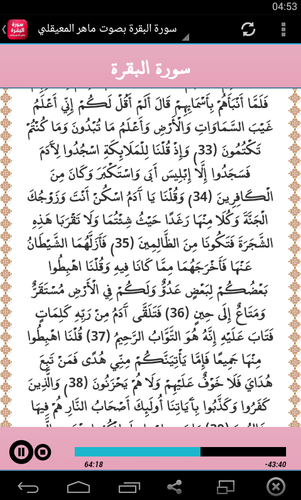 04:53
سورة البقرة بصوت ماهر المعيقلي
سورة البقرة
فَلَمَّا أَنْبَأَهُمْ بِأَسْمَائِهِمْ قَالَ أَلَمْ أَقُلْ لَكُمْ إِنِّي أَعْلَمُ
غَيْبَ السَّمَاوَاتِ وَالْأَرْضِ وَأَعْلَمُ مَا تُبْدُونَ وَمَا كُنْتُمْ
تَكْتُمُونَ (33) وَإِذْ قُلْنَا لِلْمَلَائِكَةِ اسْجُدُوا لِآدَمَ
فَسَجَدُوا إِلَّا إِبْلِيسَ أَبَى وَاسْتَكْبَرَ وَكَانَ مِنَ
الْكَافِرِينَ (34) وَقُلْنَا يَا آدَمُ اسْكُنْ أَنْتَ وَزَوْجُكَ
الْجَنَّةَ وَكُلَا مِنْهَا رَغَدًا حَيْثُ شِئْتُمَا وَلَا تَقْرَبَا هَذِهِ
الشَّجَرَةَ فَتَكُونَا مِنَ الظَّالِمِينَ (35) فَأَزَلَّهُمَا الشَّيْطَانُ
عَنْهَا فَأَخْرَجَهُمَا مِمَّا كَانَا فِيهِ وَقُلْنَا اهْبِطُوا
بَعْضُكُمْ لِبَعْضٍ عَدُوٌّ وَلَكُمْ فِي الْأَرْضِ مُسْتَقَرٌّ
وَمَتَاعٌ إِلَى حِينٍ (36) فَتَلَقَّى آدَمُ مِنْ رَبِّهِ كَلِمَاتٍ
فَتَابَ عَلَيْهِ إِنَّهُ هُوَ التَّوَّابُ الرَّحِيمُ (37) قُلْنَا اهْبِطُوا
مِنْهَا جَمِيعًا فَإِمَّا يَأْتِيَنَّكُمْ مِنِّي هُدًى فَمَنْ تَبِعَ
هُدَايَ فَلَا خَوْفٌ عَلَيْهِمْ وَلَا هُمْ يَحْزَنُونَ (38) وَالَّذِينَ
كَفَرُوا وَكَذَّبُوا بِآيَاتِنَا أُولَئِكَ أَصْحَابُ النَّارِ هُمْ فِيهَا
64:18
-43:40